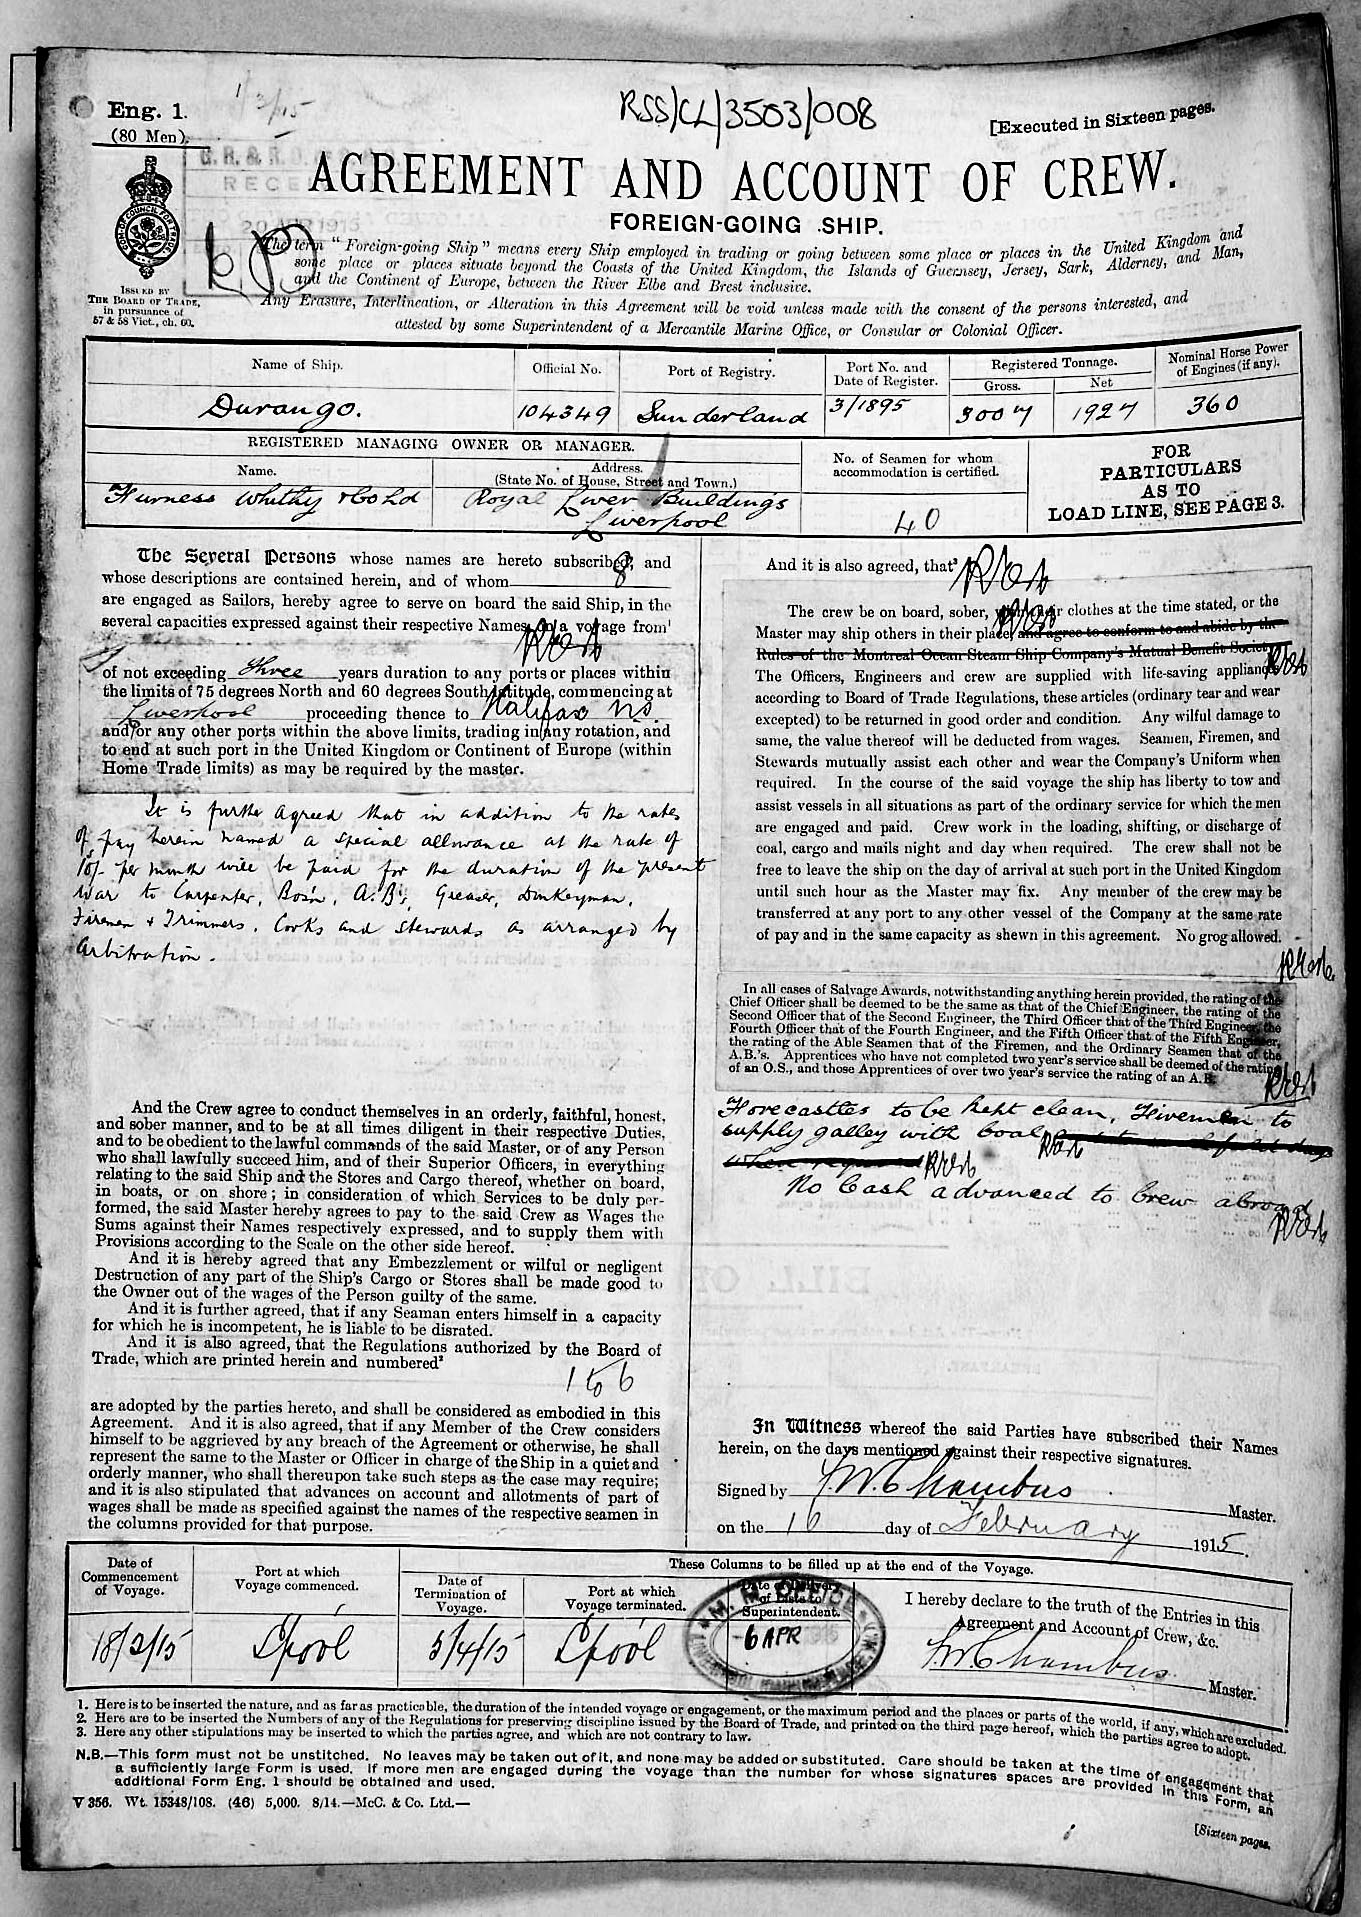 Eng. 1.
(80 Men).
1/3/15
RSS/CL/3503/008
[Executed in Sixteen pages.
G. R. & R. D.
RECE
AGREEMENT AND ACCOUNT OF CREW.
FOREIGN-GOING SHIP.
ISSUED BY
THE BOARD OF TRADE,
in pursuance of
57 & 58 Vict., ch. 60.
The term "Foreign-going Ship" means every Ship employed in trading or going between some place or places in the United Kingdom and
some place or places situate beyond the Coasts of the United Kingdom, the Islands of Guernsey, Jersey, Sark, Alderney, and Man,
and the Continent of Europe, between the River Elbe and Brest inclusive.
Any Erasure, Interlineation, or Alteration in this Agreement will be void unless made with the consent of the persons interested, and
attested by some Superintendent of a Mercantile Marine Office, or Consular or Colonial Officer.
Name of Ship. Official No. Port of Registry. Port No. and Date of Register. Registered Tonnage. Gross. Net Nominal Horse Power of Engines (if any).
Durango. 104349 Sunderland 3/1895 3007 1927 360
REGISTERED MANAGING OWNER OR MANAGER.
Name. Address. (State No. of House, Street and Town.)
No. of Seamen for whom accommodation is certified.
FOR PARTICULARS AS TO LOAD LINE, SEE PAGE 3.
Furness Withy & Co Ld Royal Liver Buildings
Liverpool
40
The Several Persons whose names are hereto subscribed, and
whose descriptions are contained herein, and of whom 8
are engaged as Sailors, hereby agree to serve on board the said Ship, in the
several capacities expressed against their respective Names, on a voyage from¹
of not exceeding three years duration to any ports or places within
the limits of 75 degrees North and 60 degrees South latitude, commencing at
Liverpool proceeding thence to Halifax NS
and/or any other ports within the above limits, trading in any rotation, and
to end at such port in the United Kingdom or Continent of Europe (within
Home Trade limits) as may be required by the master.
It is further agreed that in addition to the rates
of pay herein named a special allowance at the rate of
10/- per month will be paid for the duration of the present
war to Carpenter, Bos'n, A.B's, Greaser, Donkeyman,
Firemen & Trimmers. Cooks and Stewards as arranged by
Arbitration.
And the Crew agree to conduct themselves in an orderly, faithful, honest,
and sober manner, and to be at all times diligent in their respective Duties,
and to be obedient to the lawful commands of the said Master, or of any Person
who shall lawfully succeed him, and of their Superior Officers, in everything
relating to the said Ship and the Stores and Cargo thereof, whether on board,
in boats, or on shore; in consideration of which Services to be duly per-
formed, the said Master hereby agrees to pay to the said Crew as Wages the
Sums against their Names respectively expressed, and to supply them with
Provisions according to the Scale on the other side hereof.
And it is hereby agreed that any Embezzlement or wilful or negligent
Destruction of any part of the Ship's Cargo or Stores shall be made good to
the Owner out of the wages of the Person guilty of the same.
And it is further agreed, that if any Seaman enters himself in a capacity
for which he is incompetent, he is liable to be disrated.
And it is also agreed, that the Regulations authorized by the Board of
Trade, which are printed herein and numbered²
1 to 6
are adopted by the parties hereto, and shall be considered as embodied in this
Agreement. And it is also agreed, that if any Member of the Crew considers
himself to be aggrieved by any breach of the Agreement or otherwise, he shall
represent the same to the Master or Officer in charge of the Ship in a quiet and
orderly manner, who shall thereupon take such steps as the case may require;
and it is also stipulated that advances on account and allotments of part of
wages shall be made as specified against the names of the respective seamen in
the columns provided for that purpose.
And it is also agreed, that³
The crew be on board, sober, with their clothes at the time stated, or the
Master may ship others in their place, and agree to conform to and abide by the
Rules of the Montreal Ocean Steam Ship Company's Mutual Benefit Society.
The Officers, Engineers and crew are supplied with life-saving appliances
according to Board of Trade Regulations, these articles (ordinary tear and wear
excepted) to be returned in good order and condition. Any wilful damage to
same, the value thereof will be deducted from wages. Seamen, Firemen, and
Stewards mutually assist each other and wear the Company's Uniform when
required. In the course of the said voyage the ship has liberty to tow and
assist vessels in all situations as part of the ordinary service for which the men
are engaged and paid. Crew work in the loading, shifting, or discharge of
coal, cargo and mails night and day when required. The crew shall not be
free to leave the ship on the day of arrival at such port in the United Kingdom
until such hour as the Master may fix. Any member of the crew may be
transferred at any port to any other vessel of the Company at the same rate
of pay and in the same capacity as shewn in this agreement. No grog allowed.
In all cases of Salvage Awards, notwithstanding anything herein provided, the rating of the
Chief Officer shall be deemed to be the same as that of the Chief Engineer, the rating of the
Second Officer that of the Second Engineer, the Third Officer that of the Third Engineer, the
Fourth Officer that of the Fourth Engineer, and the Fifth Officer that of the Fifth Engineer,
the rating of the Able Seamen that of the Firemen, and the Ordinary Seamen that of the
A.B.'s. Apprentices who have not completed two year's service shall be deemed of the rating
of an O.S., and those Apprentices of over two year's service the rating of an A.B.
Forecastles to be kept clean, Firemen to
supply galley with coal
when required
No Cash advanced to Crew abroad
In Witness whereof the said Parties have subscribed their Names
herein, on the days mentioned against their respective signatures.
Signed by F.W. Chambers Master.
on the 16 day of February 1915.
These Columns to be filled up at the end of the Voyage.
Date of Commencement of Voyage. Port at which Voyage commenced. Date of Termination of Voyage. Port at which Voyage terminated. Date of Delivery of Lists to Superintendent.
I hereby declare to the truth of the Entries in this
Agreement and Account of Crew, &c.
18/2/15 L'pool 5/4/15 L'pool 6 APR
F.W. Chambers Master.
M. M. OFFICE
1. Here is to be inserted the nature, and as far as practicable, the duration of the intended voyage or engagement, or the maximum period and the places or parts of the world, if any, which are excluded.
2. Here are to be inserted the Numbers of any of the Regulations for preserving discipline issued by the Board of Trade, and printed on the third page hereof, which the parties agree to adopt.
3. Here any other stipulations may be inserted to which the parties agree, and which are not contrary to law.
N.B.—This form must not be unstitched. No leaves may be taken out of it, and none may be added or substituted. Care should be taken at the time of engagement that
a sufficiently large Form is used. If more men are engaged during the voyage than the number for whose signatures spaces are provided in this Form, an
additional Form Eng. 1 should be obtained and used.
V 356. Wt. 15348/108. (46) 5,000. 8/14.—McC. & Co. Ltd.—
[Sixteen pages.